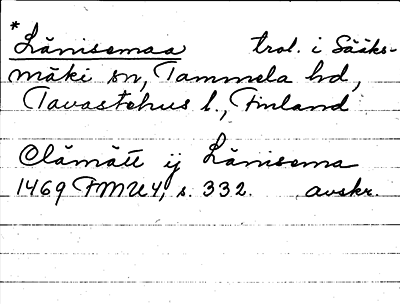 *Länisemaa trol. i Sääks-
mäki sn, Tammela hd,
Tavastehus l., Finland
Olämätt ij Länisema
1469 FMU 4, s. 332. avskr.